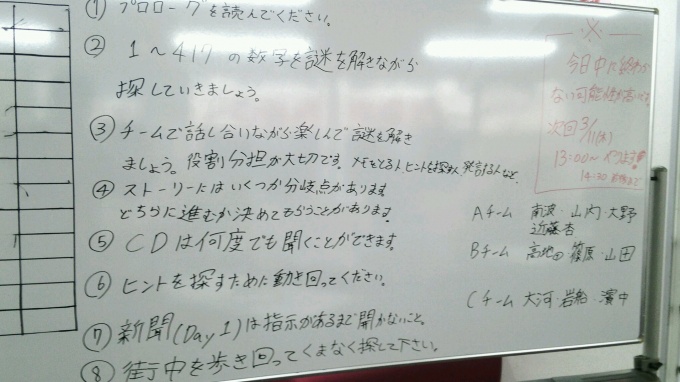 ① プロローグを読んでください。
② 1～417の数字を謎を解きながら
探していきましょう。
③ チームで話し合いながら楽しんで謎を解き
ましょう。役割分担が大切です。メモをとる人、ヒントを探す人、発言する人など。
④ ストーリーにはいくつか分岐点があります
どちらに進むか決めてもらうことがあります。
⑤ CDは何度でも聞くことができます。
⑥ ヒントを探すために動き回ってください。
⑦ 新聞(Day 1)は指示があるまで開かないこと。
⑧ 街中を歩き回ってくまなく探して下さい。
※
今日中に終わら
ない可能性が高いです。
次回 3/11(水)
13:00～やります
14:30
Aチーム 南波・山内・大野
近藤杏
Bチーム 高地田・篠原・山田
Cチーム 大河・岩船・濱中